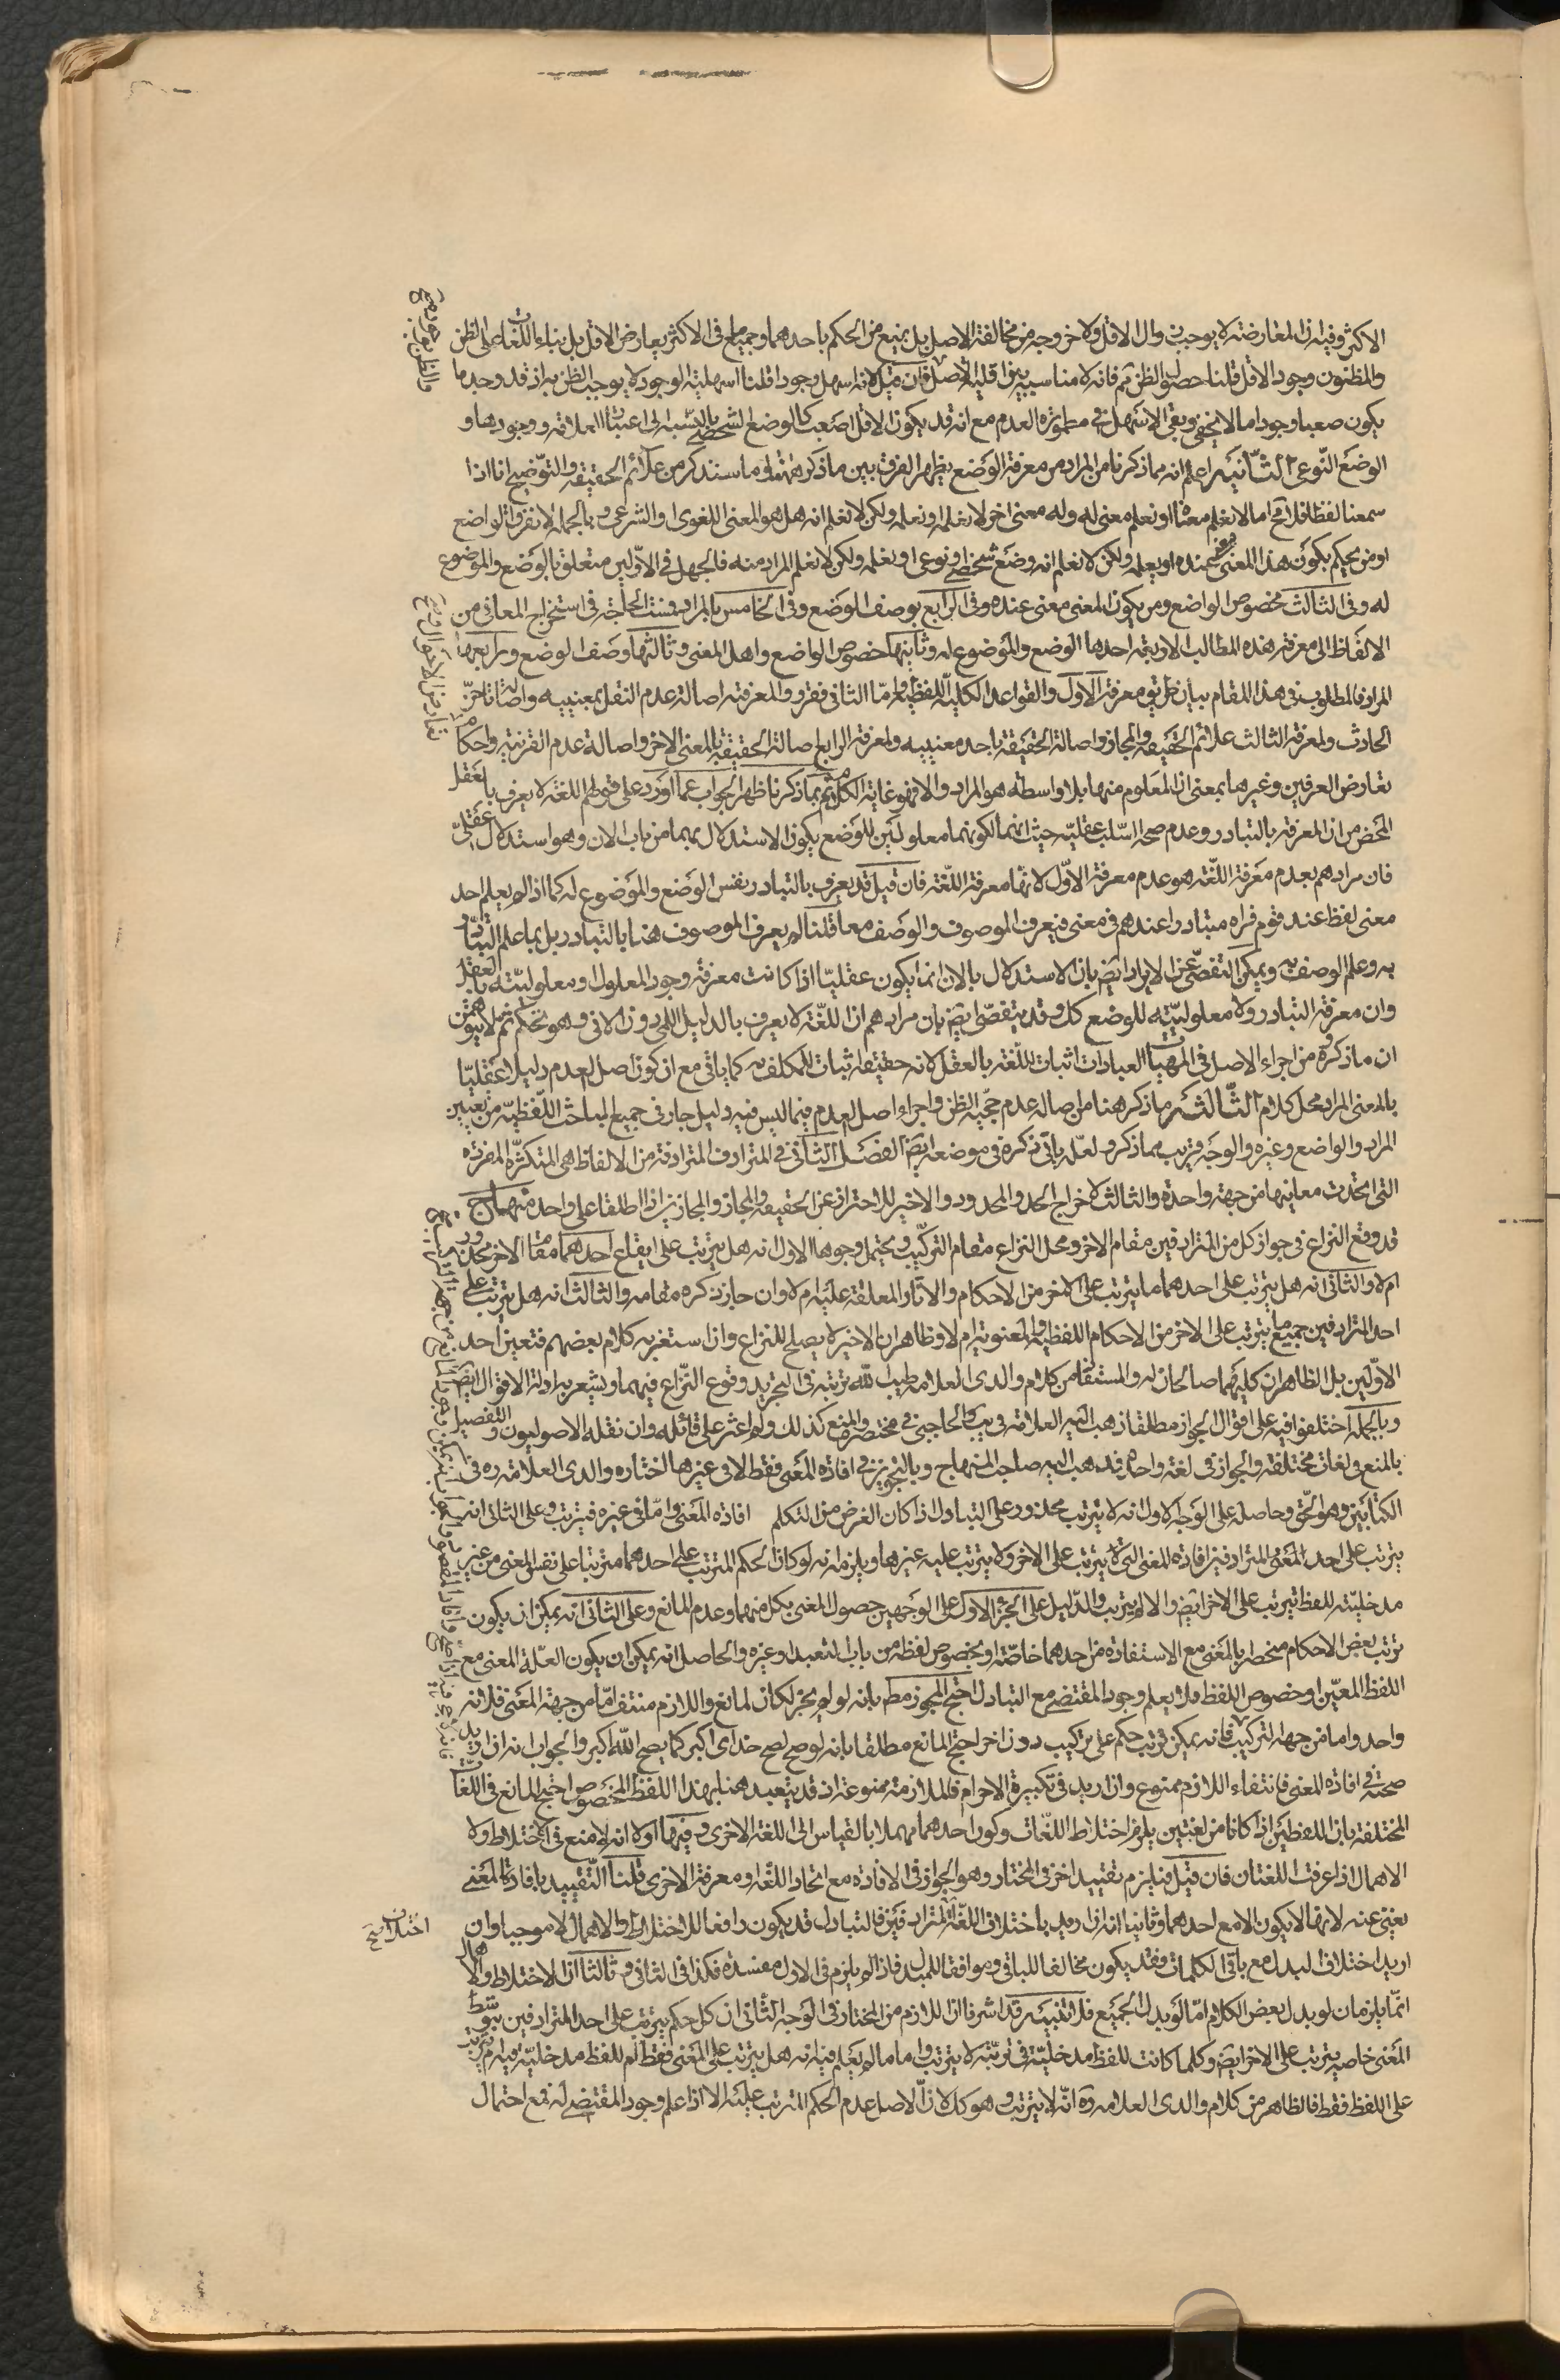 الاكثر وفيه ان المعارضة لا يوجب زوال الاقل ولا خروجه من مخالفة الاصل بل يمنع من الحكم باحدهما وجميع ما فى الاكثر يعارض الاقل بل بناء اللغات على الظن
والمظنون وجود الاقل قلنا حصول الظن ثم فانه لا مناسبة بين اقلية الاصل فان قيل لانه اسهل وجودا قلنا اسهلية الوجود لا يوجب الظن به اذ قد وجد ما
يكون صعبا وجودا ما لا يخفى وبقى الاسهل فى مطمورة العدم مع انه قد يكون الاقل اصعب كالوضع الشخصى بالنسبة الى اعتبار العلاقة ووجودها و
الوضع النوعى الثانية اعلم انه مما ذكرنا من المراد من معرفة الوضع يظهر الفرق بين ما ذكر ههنا وما سنذكر من علائم الحقيقة والتوضيح انا اذا
سمعنا لفظا فلا يخ اما لا نعلم معناه او نعلم معنى له وله معنى اخر لا نعلمه او نعلمه ولكن لا نعلم انه هل هو المعنى اللغوى او الشرعى وبالجملة لا نعرف الواضع
او من يحكم بكون هذا المعنى عنده او يعلمه ولكن لا نعلم انه وضع شخصى او نوعى او نعلمه ولكن لا نعلم المراد منه فالجهل فى الاولين متعلق بالوضع والموضوع
له وفى الثالث بخصوص الواضع ومن يكون المعنى معنى عنده وفى الرابع بوصف الوضع وفى الخامس بالمراد فمست الحاجة فى استخراج المعانى من
الالفاظ الى معرفة هذه المطالب الاربعة احدها الوضع والموضوع له وثانيها خصوص الواضع واهل المعنى وثالثها وصف الوضع ورابعها
المراد فالمطلوب فى هذا المقام بيان طريق معرفة الاول والقواعد الكلية اللفظية واما الثانى فقرروا لمعرفته اصالة عدم النقل بمعنييه واصالة تاخر
الحادث ولمعرفة الثالث علائم الحقيقة والمجاز واصالة الحقيقة باحد معنييه ولمعرفة الرابع اصالة الحقيقة بالمعنى الاخر واصالة عدم القرينة واحكام
تعارض العرفين وغيرها بمعنى ان المعلوم منها بلا واسطة هو المراد والا فهو غاية الكل ثم بما ذكرنا ظهر الجواب عما اورد على قولهم اللغة لا يعرف بالعقل
المحض من ان المعرفة بالتبادر وعدم صحة السلب عقلية حيث انهما لكونهما معلولين للوضع يكون الاستدلال بهما من باب الان وهو استدلال عقلى
فان مرادهم بعدم معرفة اللغة هو عدم معرفة الاول لانها معرفة اللغة فان قيل قد يعرف بالتبادر نفس الوضع والموضوع له كما اذا لم يعلم احد
معنى لفظ عند قوم فراه متبادرا عندهم فى معنى فيعرف الموصوف والوصف معا قلنا لم يعرف الموصوف هنا بالتبادر بل بما علم التبادر
به وعلم الوصف به ويمكن التفصى عن الايراد ايض بان الاستدلال بالان انما يكون عقليا اذا كانت معرفة وجود المعلول او معلوليته بالعقل
وان معرفة التبادر ولا معلوليته للوضع كل وقد يتفصى ايض بان مرادهم ان اللغة لا يعرف بالدليل اللمى دون الانى وهو تحكم ثم لا يتوهمن
ان ما ذكروه من اجراء الاصل فى المهيات العبادات اثبات اللغة بالعقل لانه حقيقة اثبات المكلف به كما ياتى مع ان كون اصل العدم دليلا عقليا
بالمعنى المراد محل كلام الثالثة ما ذكر هنا من اصالة عدم حجية الظن واجراء اصل العدم فيما ليس فيه دليل جار فى جميع المباحث اللفظية من تعيين
المراد والواضع وغيره والوجه قريب مما ذكر ولعله ياتى ذكره فى موضعه ايض الفصل الثانى فى المترادف المترادفة من الالفاظ هى المتكثرة المفردة
التى اتحدت معانيها من جهة واحدة والثالث لاخراج الحد والمحدود والاخير للاحتراز عن الحقيقة والمجاز والمجازين اذا اطلقا على واحد منهاج
قد وقع النزاع فى جواز كل من المترادفين مقام الاخر ومحل النزاع مقام التركيب ويحتمل وجوها الاول انه هل يترتب على ايقاع احدهما مقام الاخر محذور
ام لا والثانى انه هل يترتب على احدهما ما يترتب على الاخر من الاحكام والاثار المعلقة عليه ام لا وان جاز ذكره مقامه والثالث انه هل يترتب على
احد المترادفين جميع ما يترتب على الاخر من الاحكام اللفظية والمعنوية ام لا وظاهر ان الاخير لا يصلح للنزاع وان استغربه كلام بعضهم فتعين احد
الاولين بل الظاهر ان كليهما صالحان له والمستفاد من كلام والدى العلامة طيب الله تربته فى التجريد وقوع النزاع فيهما ويشعر به ادلة الاقوال ايض
وبالجملة اختلفوا فيه على اقوال الجواز مطلقا ذهب اليه العلامة فى يب والحاجبى فى مختصره والمنع كذلك ولم اعثر على قائله وان نقله الاصوليون والتفصيل
بالمنع فى لغات مختلفة والجواز فى لغة واحدة ذهب اليه صاحب المنهاج وبالتجويز فى افادة المعنى فقط لا فى غيرها اختاره والدى العلامة ره فى
الكتابين وهو الحق وحاصله على الوجه الاول انه لا يترتب محذور على التبادل اذا كان الغرض من التكلم افادة المعنى واما فى غيره فيترتب وعلى الثانى انه
يترتب على احد المعنى المترادفين افادة المعنى التى يترتب على الاخر ولا يترتب عليه غيرها ويلزمه انه لو كان الحكم المترتب على احدهما مترتبا على نفس المعنى من غير
مدخلية للفظ يترتب على الاخر ايض والا لم يترتب والدليل على الجزء الاول على الوجهين حصول المعنى بكل منهما وعدم المانع وعلى الثانى انه يمكن ان يكون
ترتب بعض الاحكام منحصرا بالمعنى مع الاستفادة من احدهما خاصة او بخصوص لفظه من باب التعبد او غيره والحاصل انه يمكن ان يكون العلة المعنى مع
اللفظ المعين او خصوص اللفظ فلا يعلم وجود المقتضى مع التبادل احتج المجوز مطلقا بانه لو لم يجز لكان لمانع واللازم منتف اما من جهة المعنى فلانه
واحد واما من جهة التركيب فانه يمكن ترتب حكم على تركيب دون اخر احتج المانع مطلقا بانه لو صح لصح خداى اكبر كما يصح الله اكبر والجواب انه ان اريد
صحته فى افادة المعنى فانتفاء اللازم ممنوع وان اريد فى تكبيرة الاحرام فالملازمة ممنوعة اذ قد يتعبد هنا بهذا اللفظ المخصوص احتج المانع فى اللغات
المختلفة بان اللفظين اذا كانا من لغتين يلزم اختلاط اللغات وكون احدهما مهملا بالقياس الى اللغة الاخرى وفيها اولا انه لا منع فى الاختلاط ولا
الاهمال اذا عرفت اللغتان فان قيل فيلزم تقييد اخر فى المختار وهو الجواز فى الافادة مع اتحاد اللغة او معرفة الاخرى قلنا التقييد بافادة المعنى
يغنى عنه لانها لا يكون الا مع احدهما وثانيا انه ان اريد باختلاف اللغة المترادفين فالتبادل قد يكون دافعا للاختلاط والاهمال لا موجبا وان
اريد اختلاف البدل مع باقى الكلمات وفقد يكون مخالفا للباقى وموافقا للمبدل فاذا لم يلزم فى الاول مفسدة فكذا فى الثانى وثالثا ان الاختلاط والاهمال
انما يلزمان لو بدل بعض الكلام اما لو بدل الجميع فلا تنبيه قد اشرنا ان اللازم من المختار فى الوجه الثانى ان كل حكم يترتب على احد المترادفين بتوسط
المعنى خاصة يترتب على الاخر ايض وكلما كانت للفظ مدخلية فى ترتبه لا يترتب واما ما لم يعلم فيه انه هل يترتب على المعنى فقط ام للفظ مدخلية فيه ام يترتب
على اللفظ فقط فالظاهر من كلام والدى العلامة ره انه لا يترتب وهو كك لان الاصل عدم الحكم المترتب عليه الا اذا علم وجود المقتضى له فمع احتمال